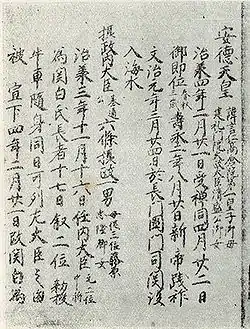 安德天皇 諱言仁高倉院第一皇子御母
建礼門院大政大臣清盛公女
治承四年二月廿一日受禅同四月廿二日
御即位 春秋三歳 壽永二年八月廿日新帝践祚
文治元年三月廿四日於長門國門司関没
入海水
摂政内大臣 基通公 六條摂政一男 母従三位藤原
忠隆卿女
治承三年十一月十六日任内大臣 元二位
中将
為関白氏長者十七日叙二位勅授
牛車随身同日可列左大臣之上由
被宣下四年二月廿一日改関白為